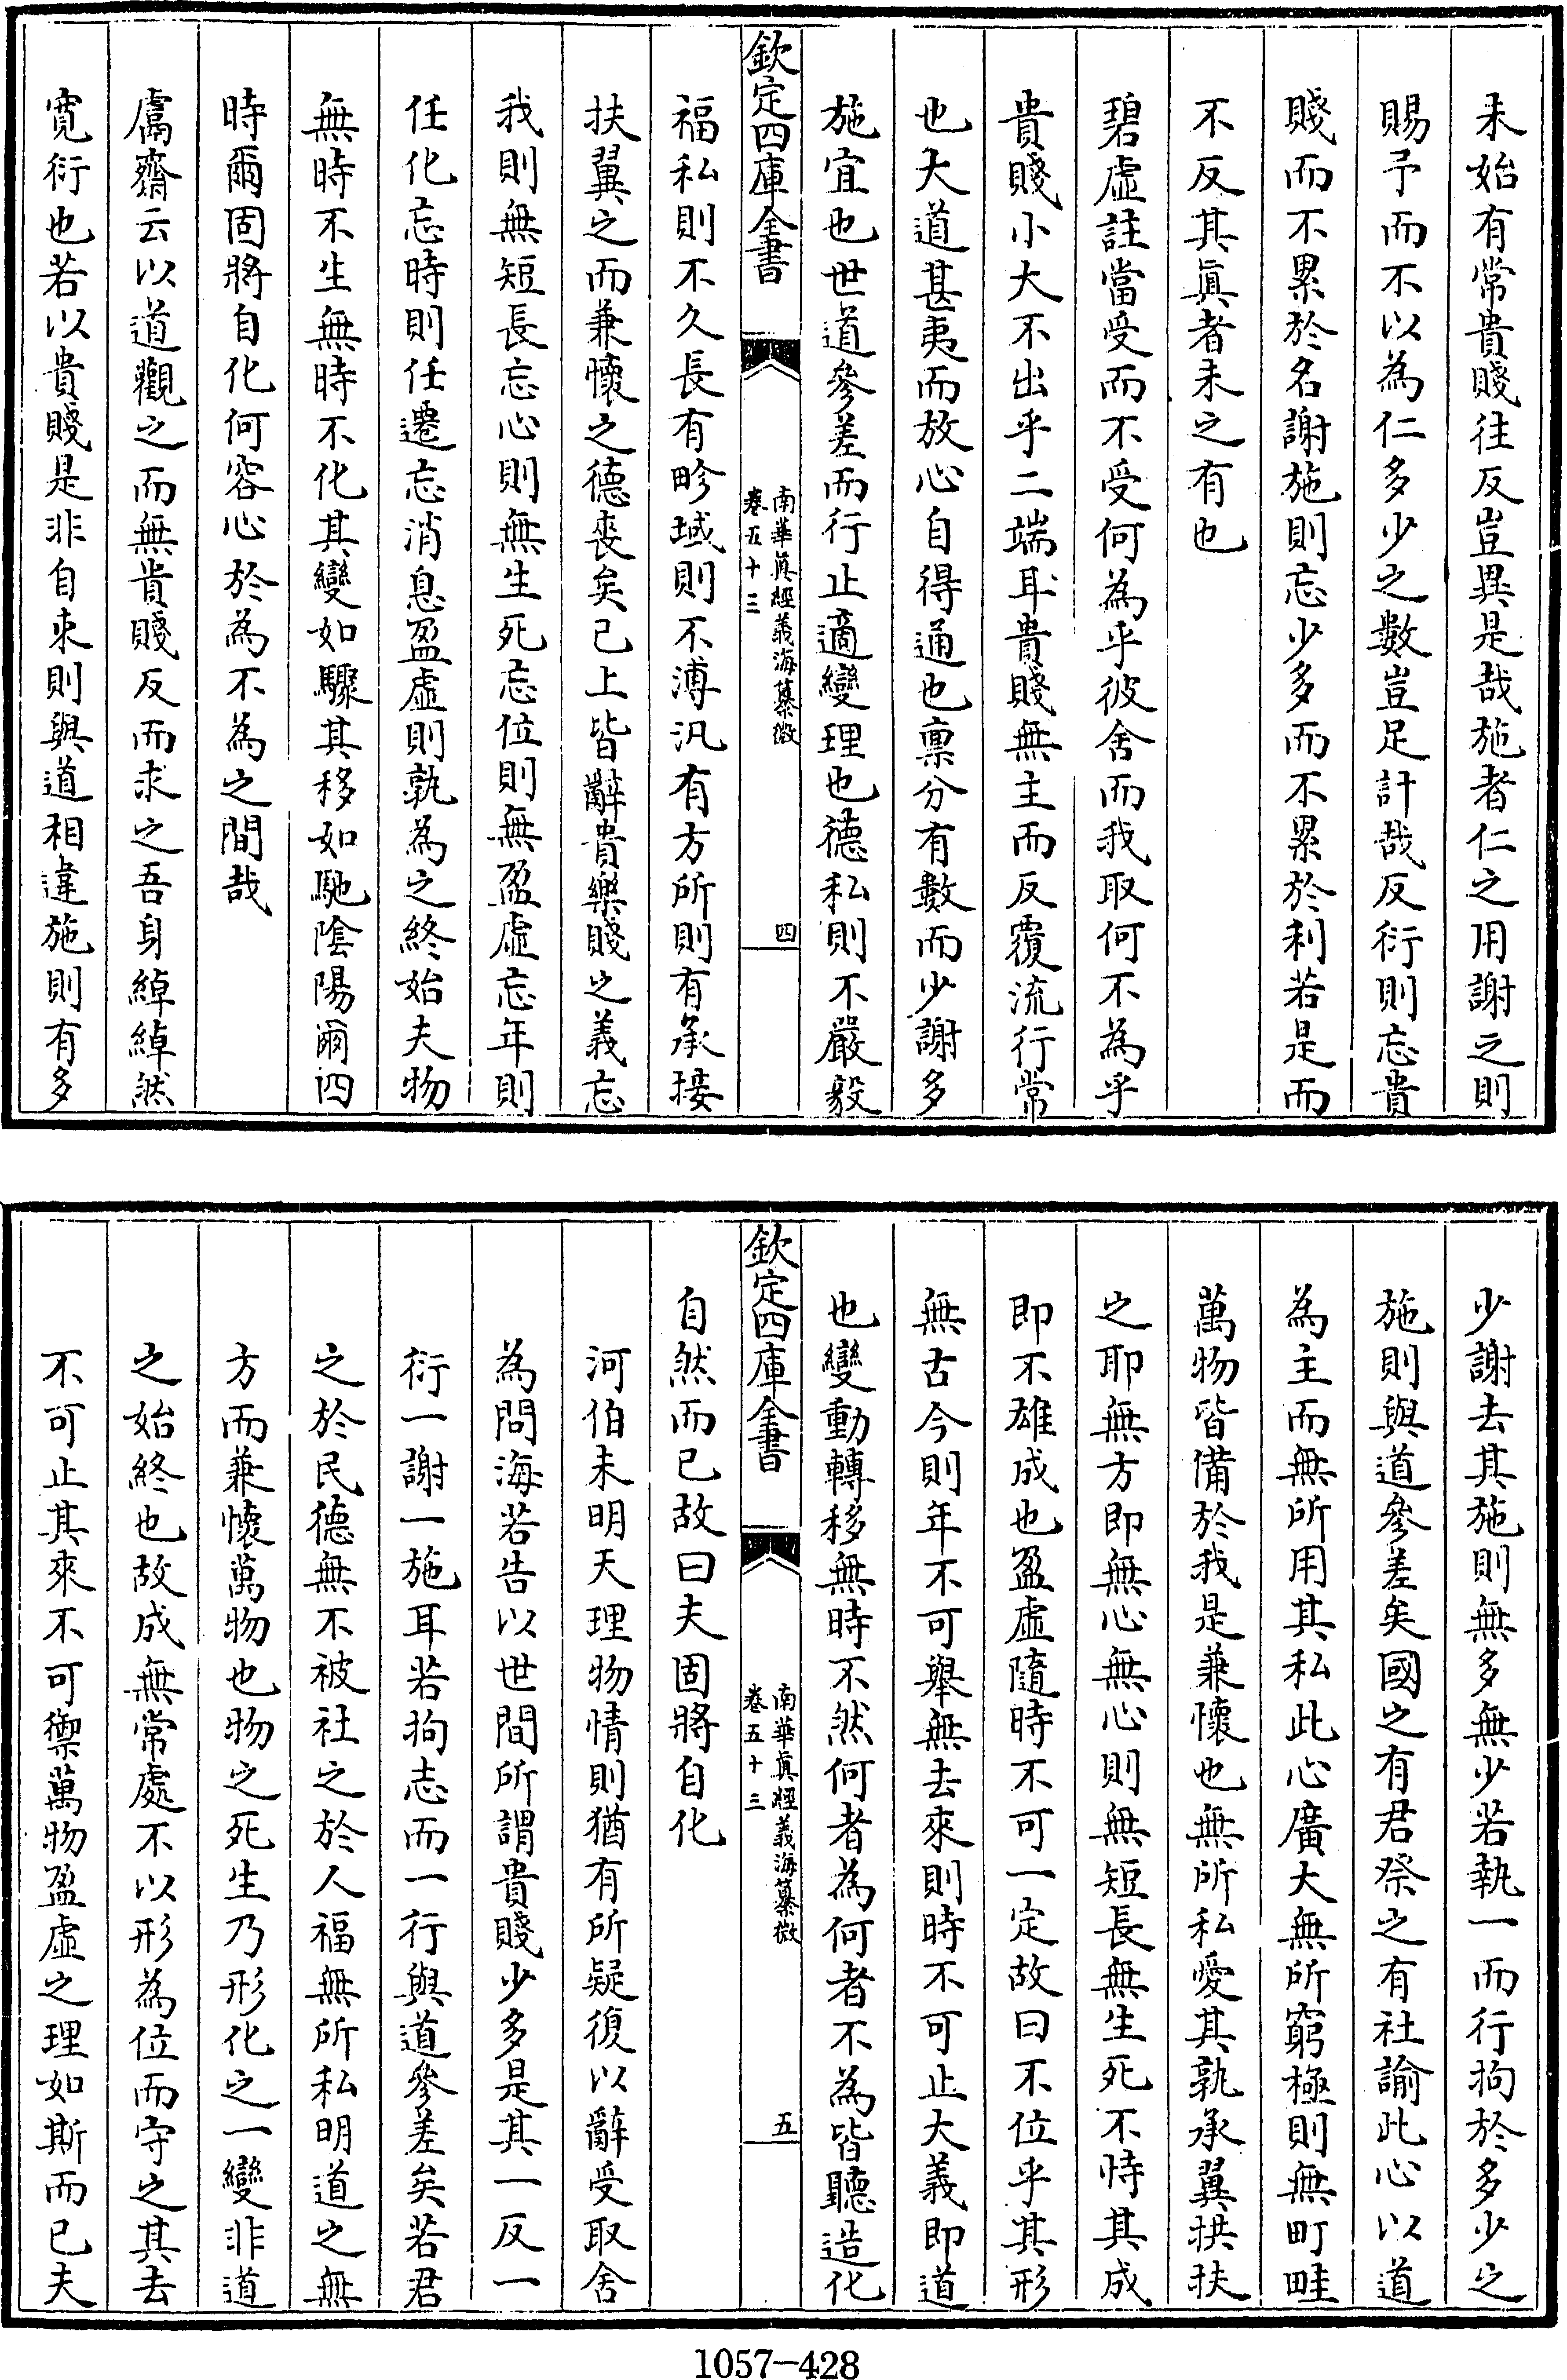 未始有常貴賤往反豈異是哉施者仁之用謝之則
賜予而不以為仁多少之數豈足計哉反衍則忘貴
賤而不累於名謝施則忘少多而不累於利若是而
不反其真者未之有也
碧虛註當受而不受何為乎彼舍而我取何不為乎
貴賤小大不出乎二端耳貴賤無主而反覆流行常
也大道甚夷而放心自得通也稟分有數而少謝多
施宜也世道參差而行止適變理也德私則不嚴毅
欽定四庫全書
南華真經義海纂微
卷五十三
四
福私則不久長有畛域則不溥汎有方所則有承接
扶翼之而兼懷之德喪矣已上皆辭貴樂賤之義忘
我則無短長忘心則無生死忘位則無盈虛忘年則
任化忘時則任遷忘消息盈虛則孰為之終始夫物
無時不生無時不化其變如驟其移如馳陰陽爾四
時爾固將自化何容心於為不為之間哉
鬳齋云以道觀之而無貴賤反而求之吾身綽綽然
寬衍也若以貴賤是非自來則與道相違施則有多
少謝去其施則無多無少若執一而行拘於多少之
施則與道參差矣國之有君祭之有社諭此心以道
為主而無所用其私此心廣大無所窮極則無町畦
萬物皆備於我是兼懷也無所私愛其孰承翼拱扶
之耶無方即無心無心則無短長無生死不恃其成
即不雄成也盈虛隨時不可一定故曰不位乎其形
無古今則年不可舉無去來則時不可止大義即道
也變動轉移無時不然何者為何者不為皆聽造化
欽定四庫全書
南華真經義海纂微
卷五十三
五
自然而已故曰夫固將自化
河伯未明天理物情則猶有所疑復以辭受取舍
為問海若告以世間所謂貴賤少多是其一反一
衍一謝一施耳若拘志而一行與道參差矣若君
之於民德無不被社之於人福無所私明道之無
方而兼懷萬物也物之死生乃形化之一變非道
之始終也故成無常處不以形為位而守之其去
不可止其來不可禦萬物盈虛之理如斯而已夫
1057-428